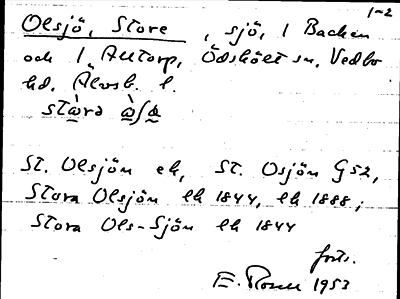 1-2
Olsjö, Store, sjö, 1 Backen
och 1 Alltorp, Ödskölt sn. Vedbo
hd. Älvsb. l.
stòra òʃa
St. Olsjön ek, St. Osjön G52,
Stora Olsjön lk 1844, lk 1888;
Stora Ols-Sjön lk 1844
forts.
E. Rosen 1953